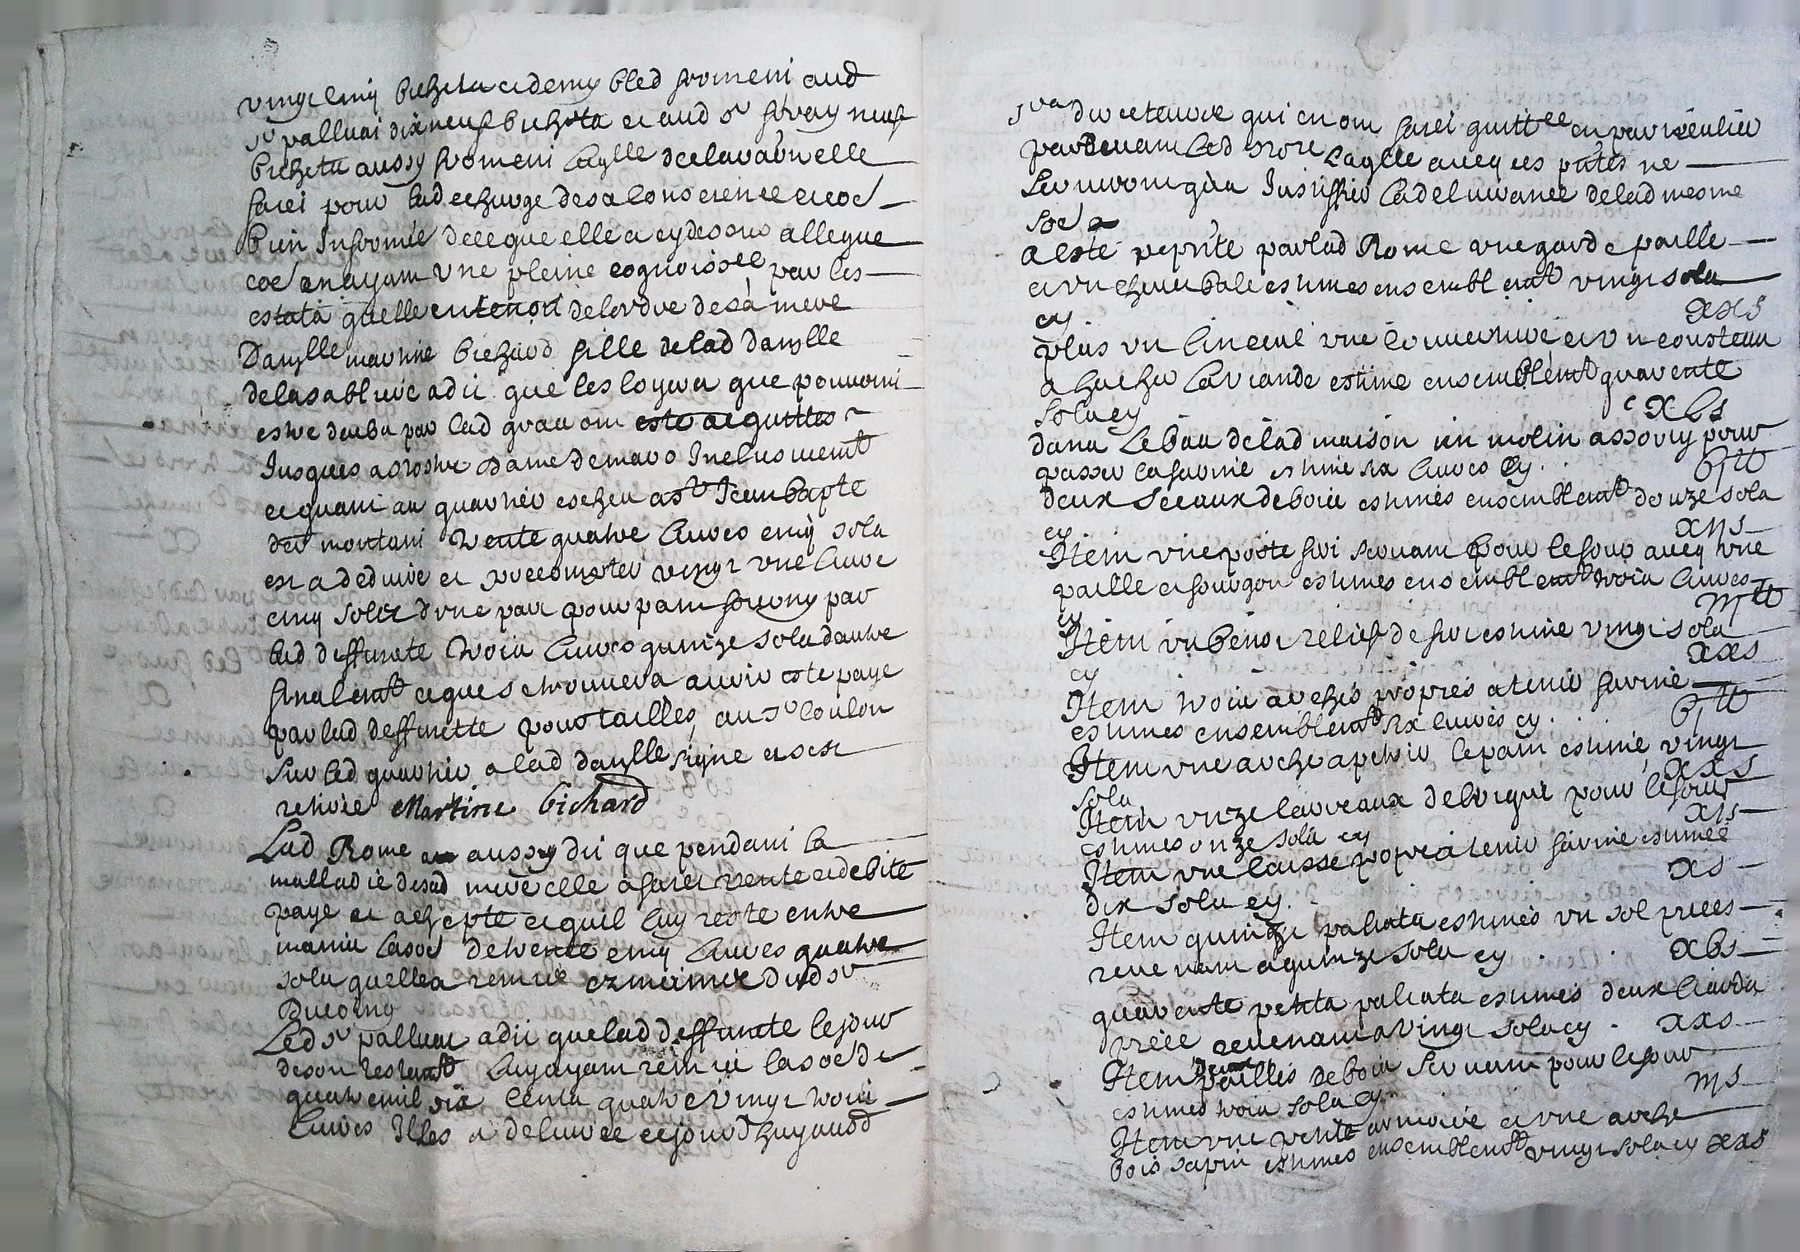 vingt cinq bichets et demy bled froment aud
sr palluai dix neuf bichets et aud sr neuf
bichets aussy froment laqlle declara'on elle
faict pour la descharge de sa conscience et coe
bien Informée de ce que elle a cy dessus allegue
coe en ayant une pleine cognoissce par les
estats quelle en tenoit de lordre de sa mere
Danlle martine bichard fille de lad danlle
de la sabliere a dit que les loyers que pouvoint
estre deubs par lad ont esté acquittes
Jusques a nostre dame de mars Inclusivemt
et quant au quartier escheu a st Jean bapte
der montant trente quatre livres cinq sols
en a deduire et precompter vingt une livre
cinq sols d'une part pour pain fourny par
lad deffuncte trois livres quinze sols dautre
finalemt ce que se trouvera avoir esté payé
par lad deffuncte pour tailles au sr coulon
sur led quartier a lad danlle signe et sest
retirée Martine bichard
Lad Rome aussy dit que pendant la
malladie de sad mere elle a faict vente et debite
paye et achepte et quil luy reste entre
mains la soe de trente cinq livres quatre
sols quelle a remise ez mains dud sr
Ducoing
Led sr palluai a dit que lad deffuncte le jour
de son testamt luy ayant remis la soe de
quatre mil six cents quatre vingt trois
livres Il les a delivrée ce jourdhuy aud
sr qui en ont faict quittce en particulier
pardevant led nore laqlle avecq les pntes ne
serviront qu'a Justiffier la delivrance de lad mesme
soe
a esté repnté par lad Rome une garde paille
et un ensemblemt vingt sols
cy xxs
plus un linceul une couverture et un cousteau
a hacher la viande estimé ensemblemt quarente
sols cy xls
dans le bas de lad maison un molin assorty pour
passer la farine estimé six livres cy. vj lt
deux sceaux de bois estimés ensemblemt douze sols
cy xijs
Item une poste servant pour le four avecq une
paille et fourgon estimes ensemblemt trois livres
cy iij lt
Item un benoi relief de estimé vingt sols
cy xxs
Item trois arches propres a tenir farine
estimes ensemblemt six livres cy. vj lt
Item une arche a petrir le pain estimé vingt
sols xxs
Item unze carreaux de brique pour le four
estimes unze sols cy xjs
Item une caisse propre a tenir farine estimée
dix sols cy. xs
Item quinze paliats estimés un sol piece
revenant a quinze sols cy xvs
quarente petits paliats estimes deux liards
piece revenant a vingt sols cy. xxs
Item deux pailles de bois servant pour le four
estimes trois sols cy. iijs
Item une petite armoire et une arche
bois sapin estimes ensemblemt vingt sols cy xxs